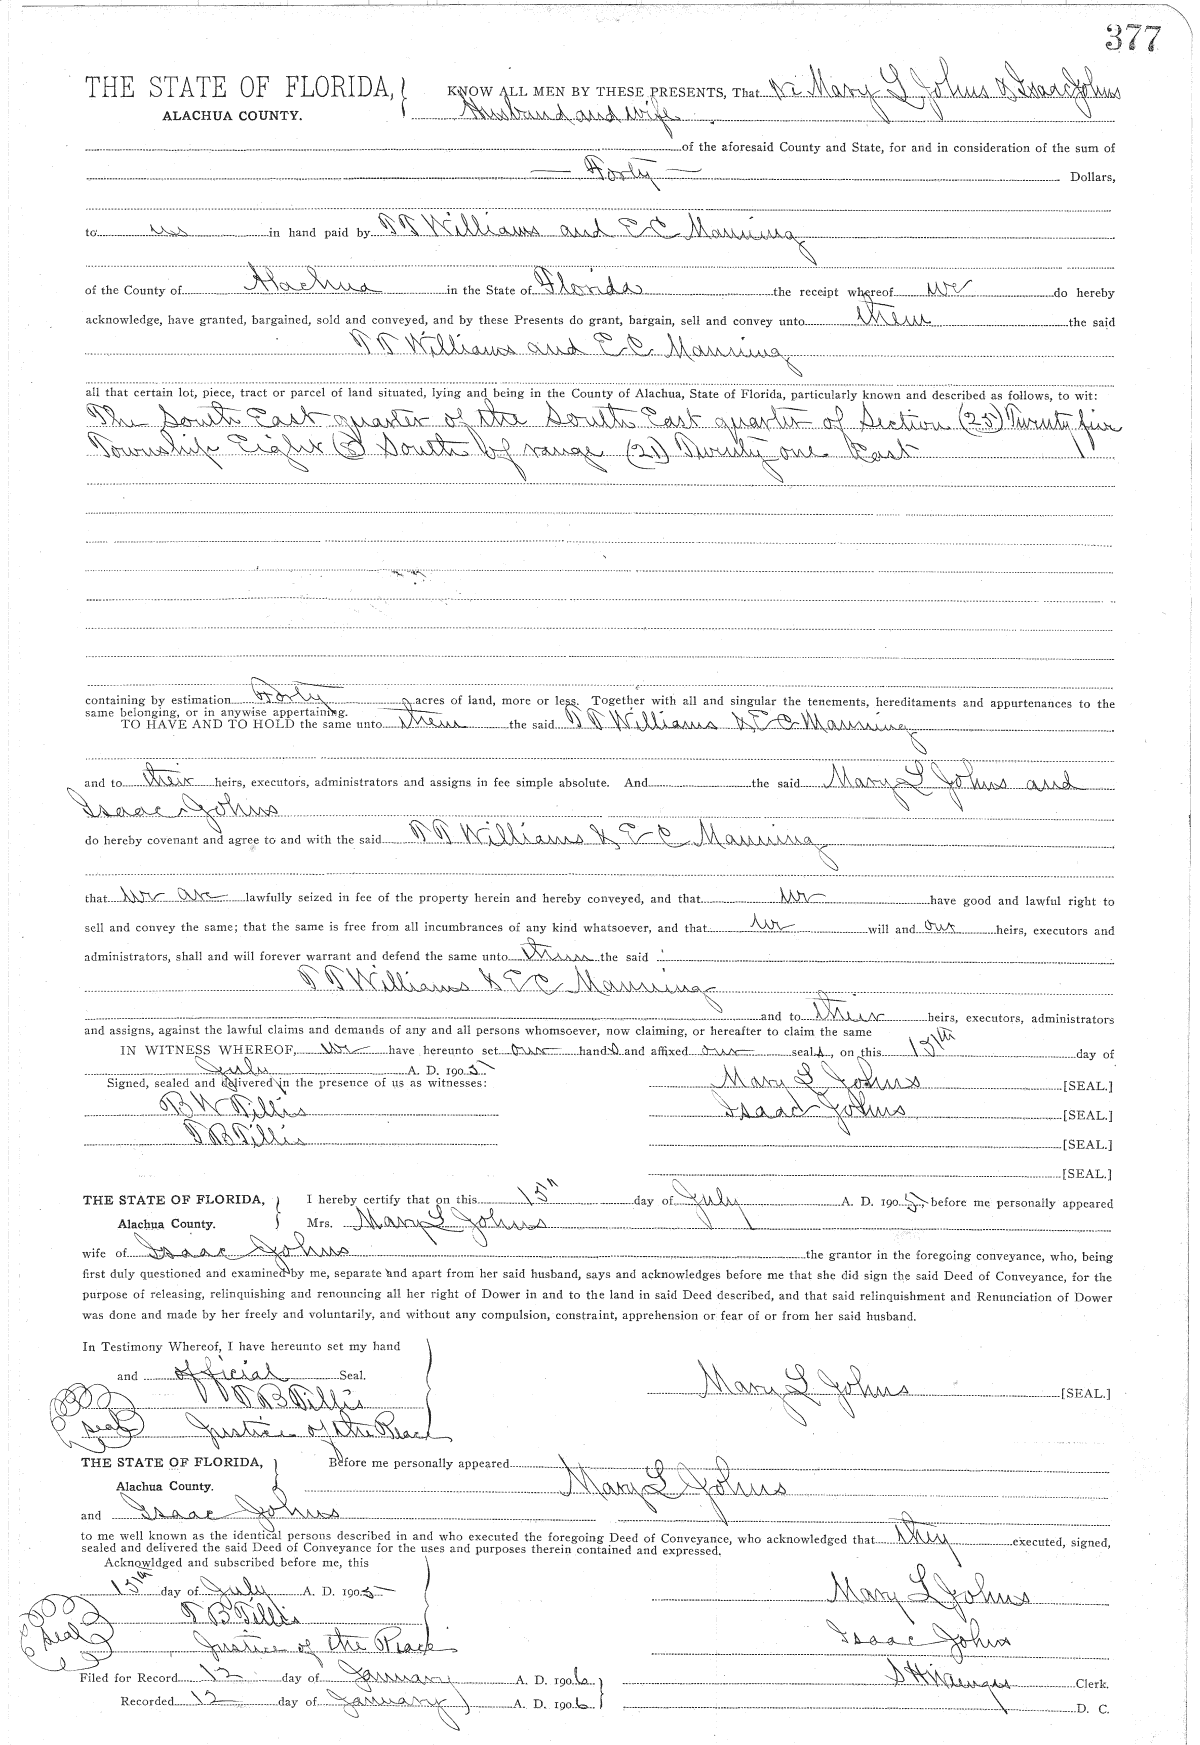 377
THE STATE OF FLORIDA,
ALACHUA COUNTY.
KNOW ALL MEN BY THESE PRESENTS, That We Mary L Johns & Isaac Johns
Husband and wife
of the aforesaid County and State, for and in consideration of the sum of
— Forty — Dollars,
to us in hand paid by T T Williams and E C Manning
of the County of Alachua in the State of Florida the receipt whereof we do hereby
acknowledge, have granted, bargained, sold and conveyed, and by these Presents do grant, bargain, sell and convey unto them the said
T T Williams and E C. Manning
all that certain lot, piece, tract or parcel of land situated, lying and being in the County of Alachua, State of Florida, particularly known and described as follows, to wit:
The South East quarter of the South East quarter of Section (25) Twenty five
Township Eight (8) South of range (21) Twenty one East
containing by estimation Forty acres of land, more or less. Together with all and singular the tenements, hereditaments and appurtenances to the
same belonging, or in anywise appertaining.
TO HAVE AND TO HOLD the same unto them the said T T Williams & E C Manning
and to their heirs, executors, administrators and assigns in fee simple absolute. And the said Mary L Johns and
Isaac Johns
do hereby covenant and agree to and with the said T T Williams & E C Manning
that we are lawfully seized in fee of the property herein and hereby conveyed, and that we have good and lawful right to
sell and convey the same; that the same is free from all incumbrances of any kind whatsoever, and that we will and our heirs, executors and
administrators, shall and will forever warrant and defend the same unto them the said
T T Williams & E C Manning
and to their heirs, executors, administrators
and assigns, against the lawful claims and demands of any and all persons whomsoever, now claiming, or hereafter to claim the same
IN WITNESS WHEREOF, we have hereunto set our hands and affixed our seals, on this 15th day of
July A. D. 1905
Signed, sealed and delivered in the presence of us as witnesses:
Mary L Johns [SEAL.]
B W Tillis
Isaac Johns [SEAL.]
T B Tillis
[SEAL.]
[SEAL.]
THE STATE OF FLORIDA,
Alachua County.
I hereby certify that on this 15th day of July A. D. 1905, before me personally appeared
Mrs. Mary L Johns
wife of Isaac Johns the grantor in the foregoing conveyance, who, being
first duly questioned and examined by me, separate and apart from her said husband, says and acknowledges before me that she did sign the said Deed of Conveyance, for the
purpose of releasing, relinquishing and renouncing all her right of Dower in and to the land in said Deed described, and that said relinquishment and Renunciation of Dower
was done and made by her freely and voluntarily, and without any compulsion, constraint, apprehension or fear of or from her said husband.
In Testimony Whereof, I have hereunto set my hand
and official Seal.
Mary L Johns [SEAL.]
T B Tillis
Seal Justice of the Peace
THE STATE OF FLORIDA,
Alachua County.
Before me personally appeared
Mary L Johns
and Isaac Johns
to me well known as the identical persons described in and who executed the foregoing Deed of Conveyance, who acknowledged that they executed, signed,
sealed and delivered the said Deed of Conveyance for the uses and purposes therein contained and expressed.
Acknowldged and subscribed before me, this
15th day of July A. D. 1905
Mary L Johns
T B Tillis
Seal Justice of the Peace
Isaac Johns
Filed for Record 12 day of January A. D. 1906
S H Wienges Clerk.
Recorded 12 day of January A. D. 1906
D. C.